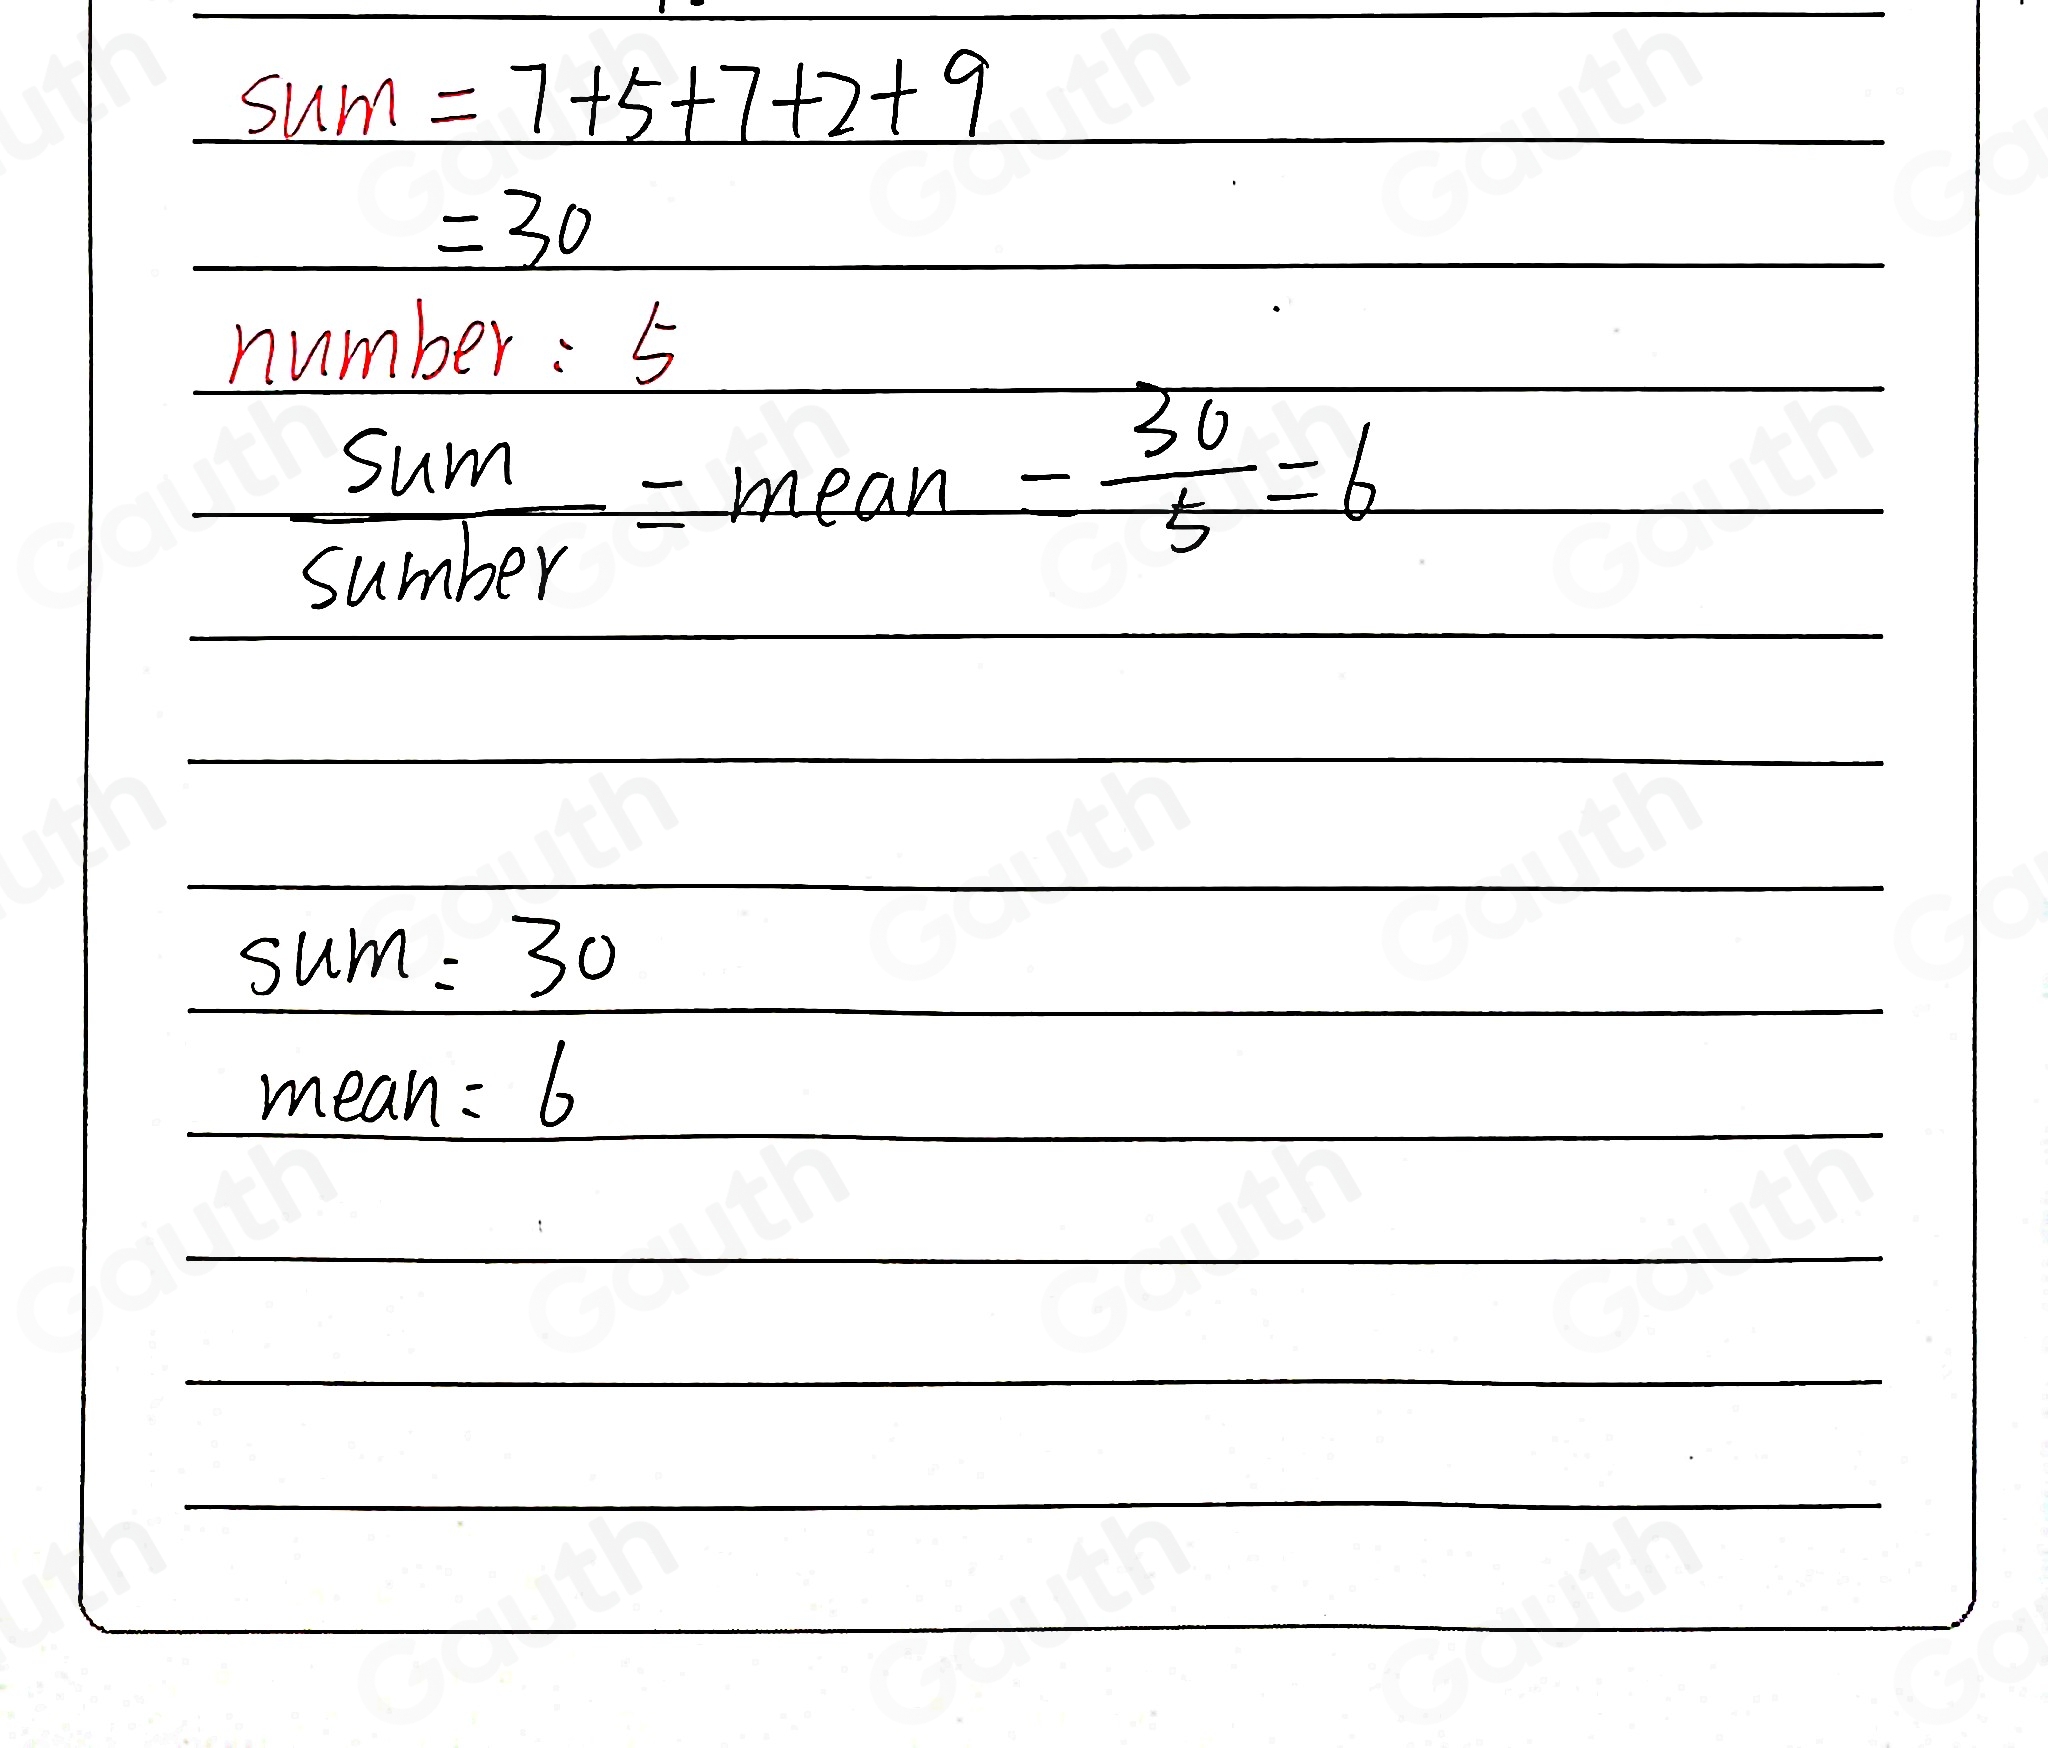 sum = 7+5+7+2+9
= 30
number: 5
sum/sumber = mean = 30/5 = 6
sum = 30
mean = 6